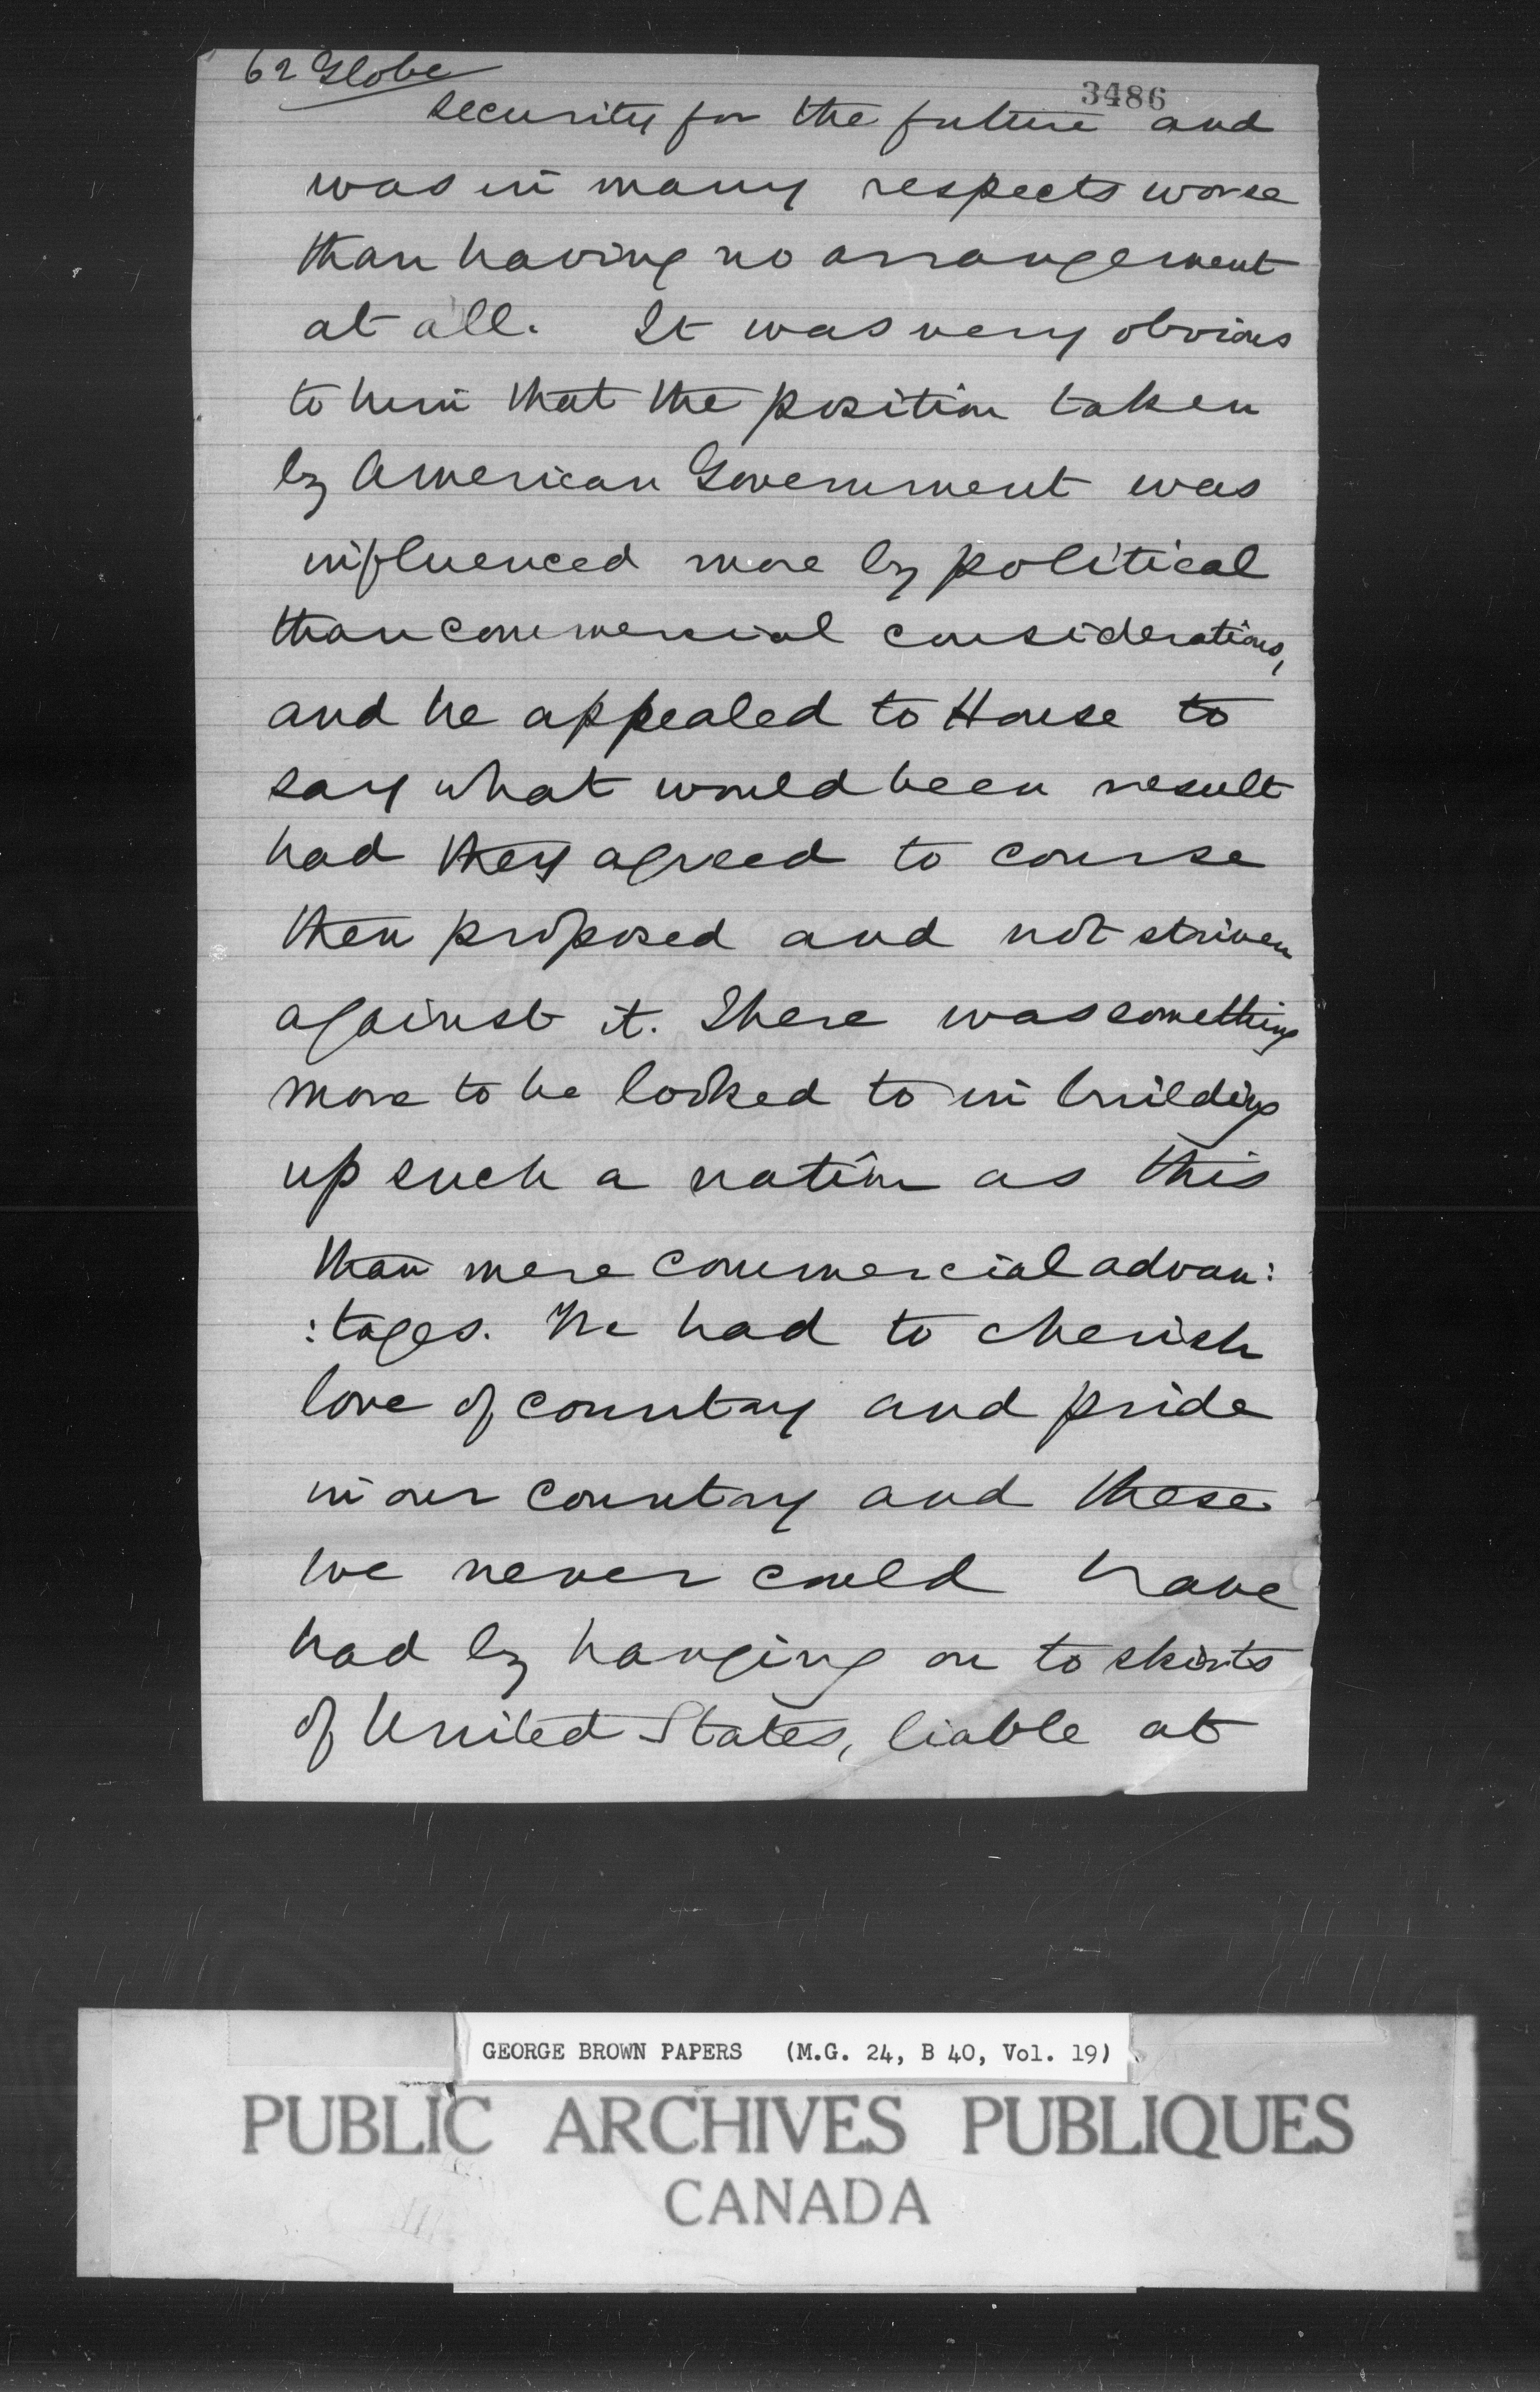 62 Globe
3486
security for the future and
was in many respects worse
than having no arrangement
at all. It was very obvious
to him that the position taken
by American Government was
influenced more by political
than commercial considerations,
and he appealed to House to
say what would been result
had they agreed to course
then proposed and not striven
against it. There was something
more to be looked to in building
up such a nation as this
than mere commercial advan:
:tages. We had to cherish
love of country and pride
in our country and these
we never could have
had by hanging on to skirts
of United States, liable at
GEORGE BROWN PAPERS (M.G. 24, B 40, Vol. 19)
PUBLIC ARCHIVES PUBLIQUES
CANADA